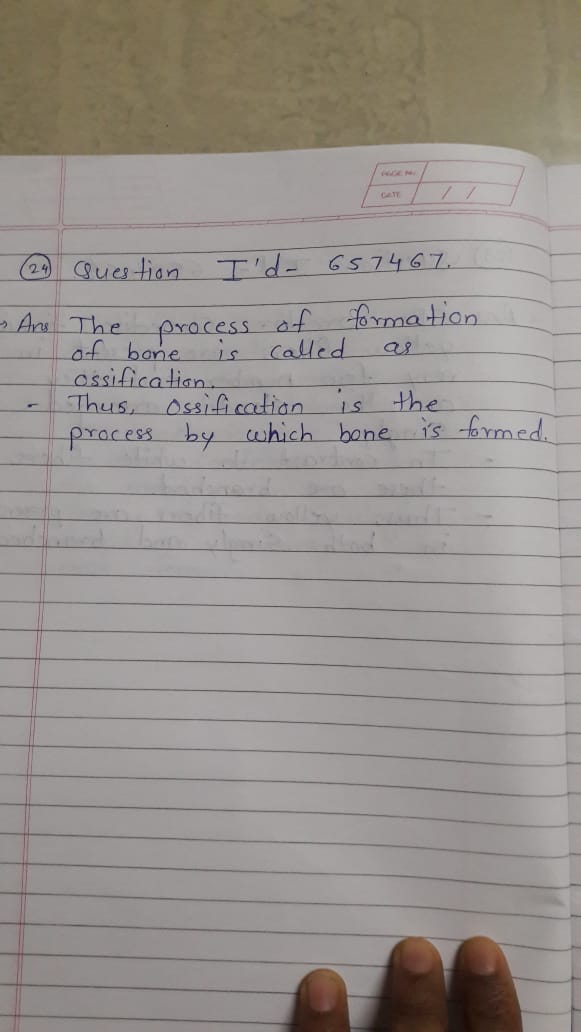 PAGE No.
DATE / /
24 Question I'd- 657467.
→ Ans The process of formation
of bone is called as
ossification.
- Thus, Ossification is the
process by which bone is formed.